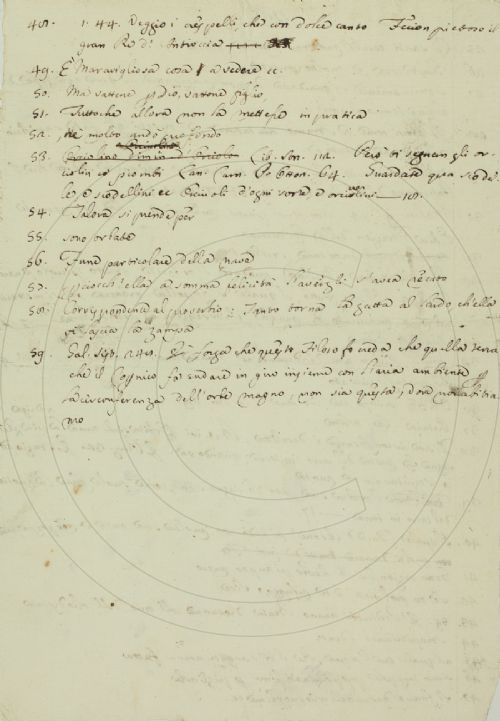 48. 1. 44. Veggio i cespelli, che con dolce canto Fecion pietoso il
gran Re di Antioccia
49. È maravigliosa cosa a vedere ec.
50. Ma vattene p dio, vatone figlio
51. Tuttoche allora non la mettesse in pratica
52. ne molto andò profondo
53. Lib. son. 112. Però ti seguon gli or
ciolin co piombi Can. Carn. 64. Guardate qua scode
le e scodellini ec Orciuoli d'ogni sorte e orciolini
54. Talora si prende per
55. sono sorbate
56. Fune particolare della nave
57. ch'ella à somma felicità l'avergli
58. Corrispondence al proverbio : Tanto torna la gatta al lardo, ch'ella
vi lascia la zampa
59. Gal. Sist. È forza che questo Filosofo creda che quella terra
che il Copernico fa andare in giro insieme con l'aria ambiente p
la circonferenza dell'orbe magno, non sia questa, dove noi abitia
mo